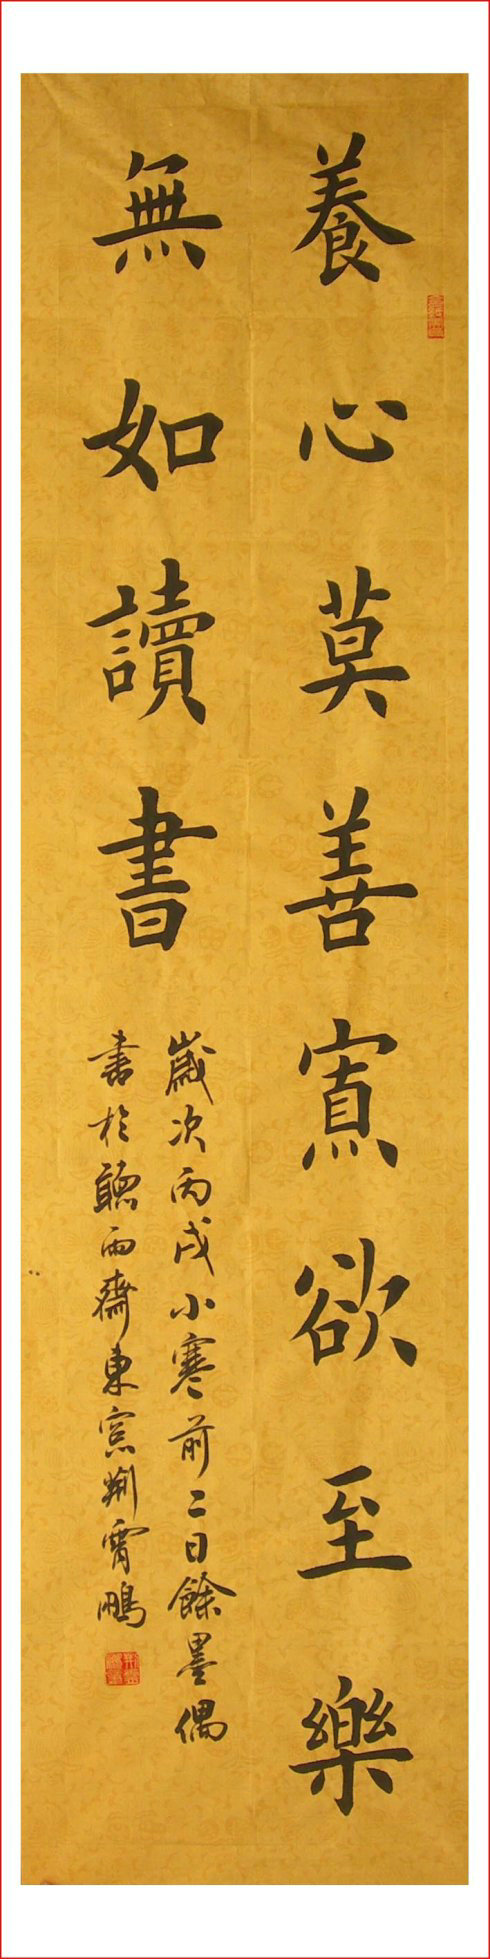 養心莫善寡欲至樂
無如讀書
歲次丙戌小寒前二日餘墨偶
書於聽雨齋東窓荆霄鵬